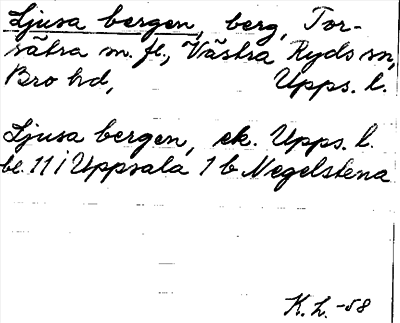 Ljusa bergen, berg, Tor-
sätra m. fl., Västra Ryds sn,
Bro hd, Upps. l.
Ljusa bergen, ek. Upps. l.
bl. 11 i Uppsala 1 b Negelstena
K. L. -58